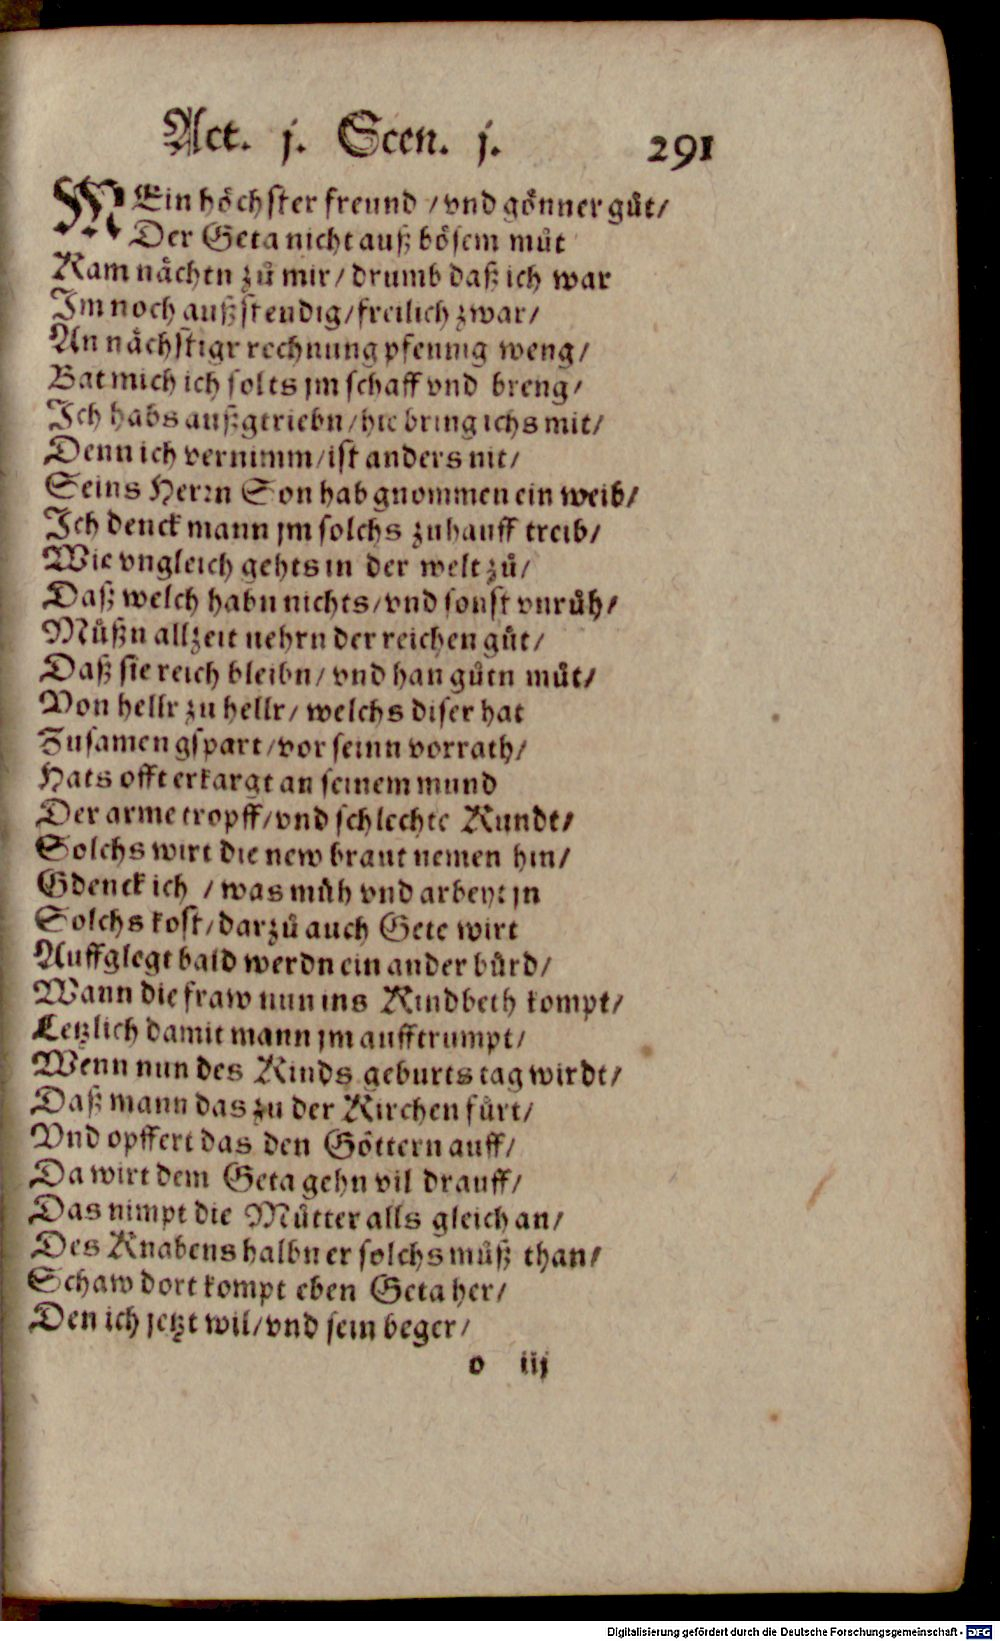 Act. j. Scen. j. 291
MEin höchster freund / vnd gönner gůt /
Der Geta nicht auß bösem můt
Kam nächtn zů mir / drumb daß ich war
Im noch außstendig / freilich zwar /
An nächstigr rechnung pfennig weng /
Bat mich ich solts jm schaff vnd breng /
Ich habs außgtriebn / hie bring ichs mit /
Denn ich vernimm / ist anders nit /
Seins Herrn Son hab gnommen ein weib /
Ich denck mann jm solchs zuhauff treib /
Wie vngleich gehts in der welt zů /
Daß welch habn nichts / vnd sonst vnrůh /
Můßn allzeit nehrn der reichen gůt /
Daß sie reich bleibn / vnd han gůtn můt /
Von hellr zu hellr / welchs diser hat
Zusamen gspart / vor seinn vorrath /
Hats offt erkargt an seinem mund
Der arme tropff / vnd schlechte Kundt /
Solchs wirt die new braut nemen hin /
Gdenck ich / was můh vnd arbeyt jn
Solchs kost / darzů auch Gete wirt
Auffglegt bald werdn ein ander bůrd /
Wann die fraw nun ins Kindbeth kompt /
Letzlich damit mann jm aufftrumpt /
Wenn nun des Kinds geburts tag wirdt /
Daß mann das zu der Kirchen fůrt /
Vnd opffert das den Göttern auff /
Da wirt dem Geta gehn vil drauff /
Das nimpt die Můtter alls gleich an /
Des Knabens halbn er solchs můß than /
Schaw dort kompt eben Geta her /
Den ich jetzt wil / vnd sein beger /
o iij
Digitalisierung gefördert durch die Deutsche Forschungsgemeinschaft - DFG